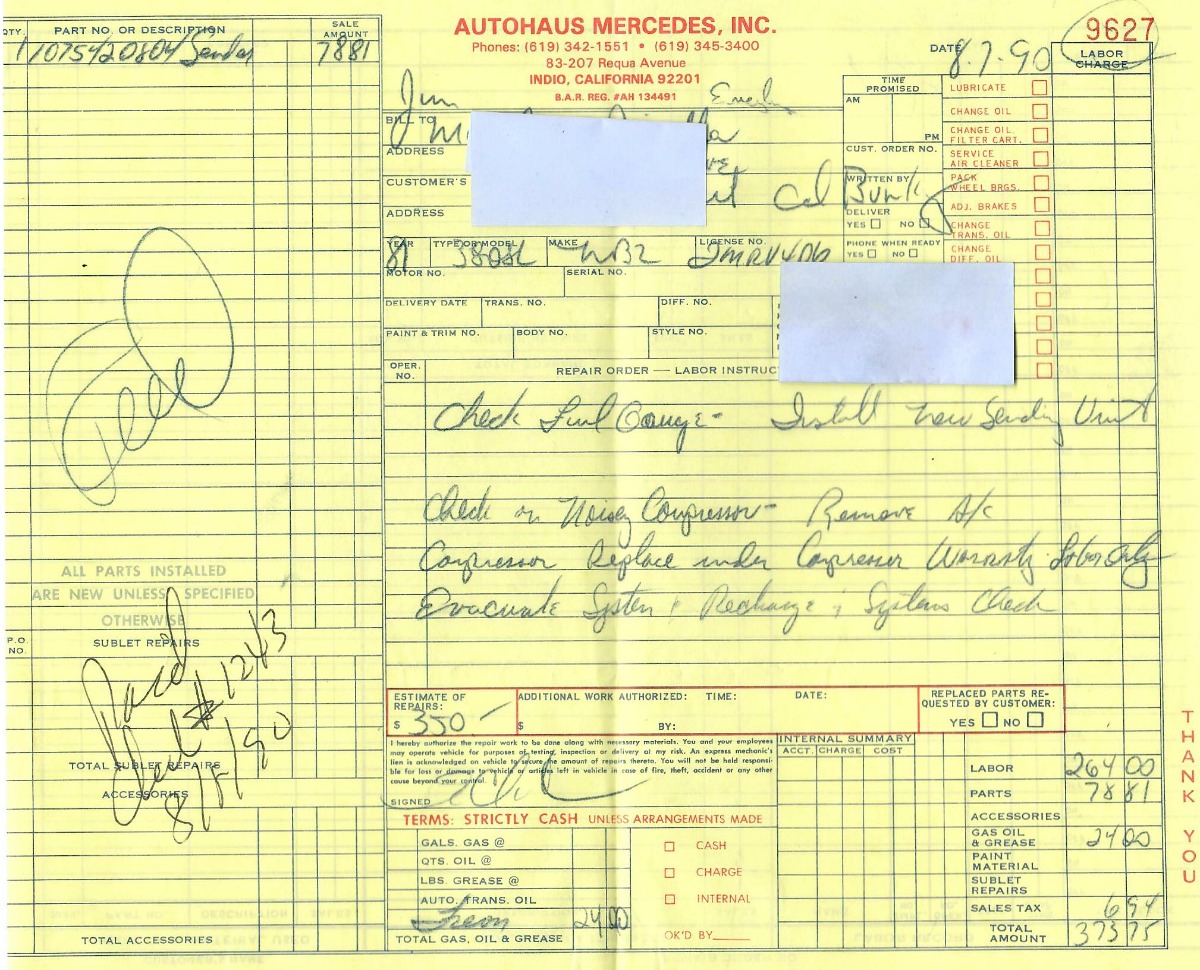 AUTOHAUS MERCEDES, INC.
Phones: (619) 342-1551 • (619) 345-3400
83-207 Requa Avenue
INDIO, CALIFORNIA 92201
B.A.R. REG. #AH 134491
9627
DATE 8.7.90
QTY. PART NO. OR DESCRIPTION SALE AMOUNT
1 1075420804 Sender 7881
LABOR CHARGE
TIME PROMISED
AM
PM
CUST. ORDER NO.
WRITTEN BY
DELIVER
YES NO
PHONE WHEN READY
YES NO
LUBRICATE
CHANGE OIL
CHANGE OIL FILTER CART.
SERVICE AIR CLEANER
PACK WHEEL BRGS.
ADJ. BRAKES
CHANGE TRANS. OIL
CHANGE DIFF. OIL
Jim
BILL TO
ADDRESS
CUSTOMER'S
ADDRESS
YEAR TYPE OR MODEL MAKE LICENSE NO.
81 380SL MBZ
MOTOR NO. SERIAL NO.
DELIVERY DATE TRANS. NO. DIFF. NO.
PAINT & TRIM NO. BODY NO. STYLE NO.
OPER. NO. REPAIR ORDER — LABOR INSTRUC
Check Fuel Gauge - Install new Sending Unit
Check on Noisey Compressor - Remove A/c
Compressor Replace under Compressor Warranty Labor Only
Evacuate System & Recharge & Systems Check
ALL PARTS INSTALLED
ARE NEW UNLESS SPECIFIED
OTHERWISE
P.O. NO. SUBLET REPAIRS
Paid
#1243
TOTAL SUBLET REPAIRS
ACCESSORIES
TOTAL ACCESSORIES
ESTIMATE OF REPAIRS:
$ 350 -
ADDITIONAL WORK AUTHORIZED: TIME: DATE:
$ BY:
REPLACED PARTS RE-
QUESTED BY CUSTOMER:
YES NO
I hereby authorize the repair work to be done along with necessary materials. You and your employees
may operate vehicle for purposes of testing, inspection or delivery at my risk. An express mechanic's
lien is acknowledged on vehicle to secure the amount of repairs thereto. You will not be held responsi-
ble for loss or damage to vehicle or articles left in vehicle in case of fire, theft, accident or any other
cause beyond your control.
SIGNED
TERMS: STRICTLY CASH UNLESS ARRANGEMENTS MADE
GALS. GAS @
QTS. OIL @
LBS. GREASE @
AUTO. TRANS. OIL
Freon 2400
TOTAL GAS, OIL & GREASE
CASH
CHARGE
INTERNAL
OK'D BY
INTERNAL SUMMARY
ACCT. CHARGE COST
LABOR 264 00
PARTS 78 81
ACCESSORIES
GAS OIL & GREASE 24 00
PAINT MATERIAL
SUBLET REPAIRS
SALES TAX 6 94
TOTAL AMOUNT 373 75
THANK YOU